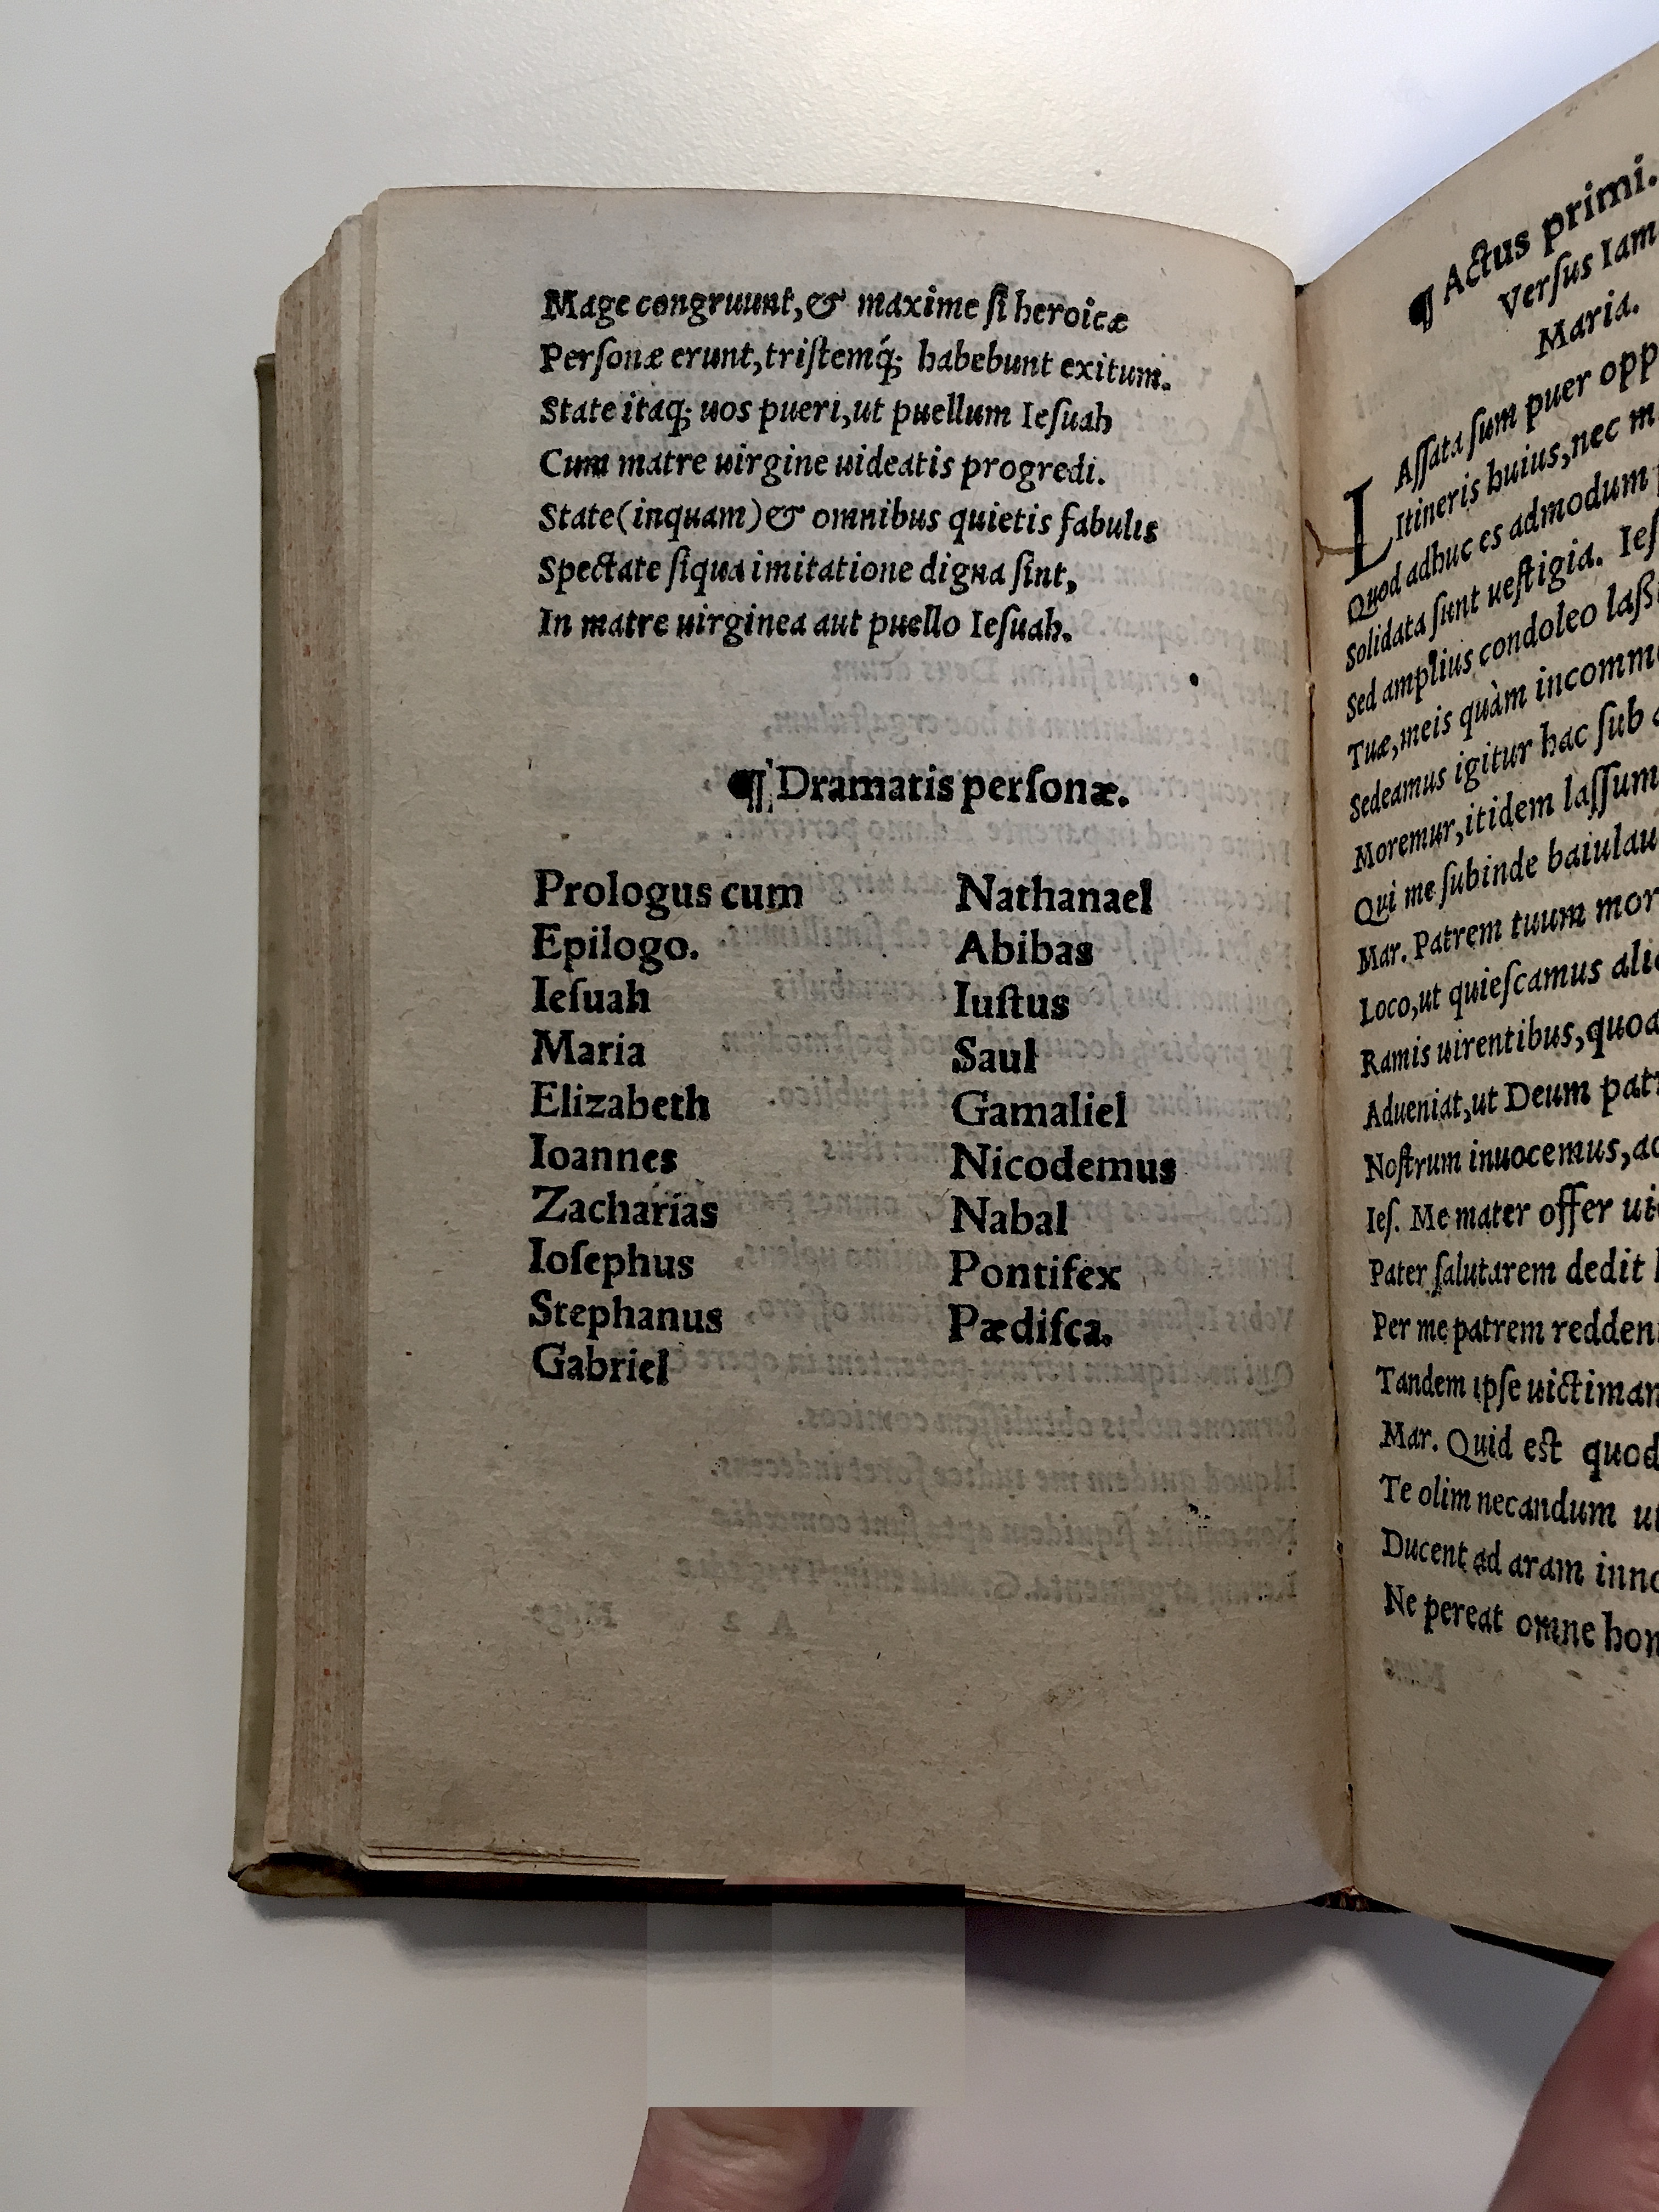 Mage congruunt, & maxime ſi heroicæ
Perſonæ erunt, triſtemq́; habebunt exitum.
State itaq; uos pueri, ut puellum Ieſuah
Cum matre uirgine uideatis progredi.
State (inquam) & omnibus quietis fabulis
Spectate ſiqua imitatione digna ſint,
In matre uirginea aut puello Ieſuah.
¶ Dramatis perſonæ.
Prologus cum
Epilogo.
Ieſuah
Maria
Elizabeth
Ioannes
Zacharias
Ioſephus
Stephanus
Gabriel
Nathanael
Abibas
Iuſtus
Saul
Gamaliel
Nicodemus
Nabal
Pontifex
Pædiſca.
¶ Actus primi.
Verſus Iam
Maria.
LAſſata ſum puer
Itineris huius, nec
Quod adhuc es admodum
Solidata ſunt ueſtigia.
Sed amplius condoleo
Tuæ, meis quàm
Sedeamus igitur hac ſub
Moremur, itidem laſſum
Qui me ſubinde
Mar. Patrem tuum
Loco, ut quieſcamus
Ramis uirentibus,
Adueniat, ut Deum
Noſtrum inuocemus,
Ieſ. Me mater offer
Pater ſalutarem dedit
Per me patrem
Tandem ipſe
Mar. Quid eſt quod
Te olim necandum
Ducent ad aram
Ne pereat omne